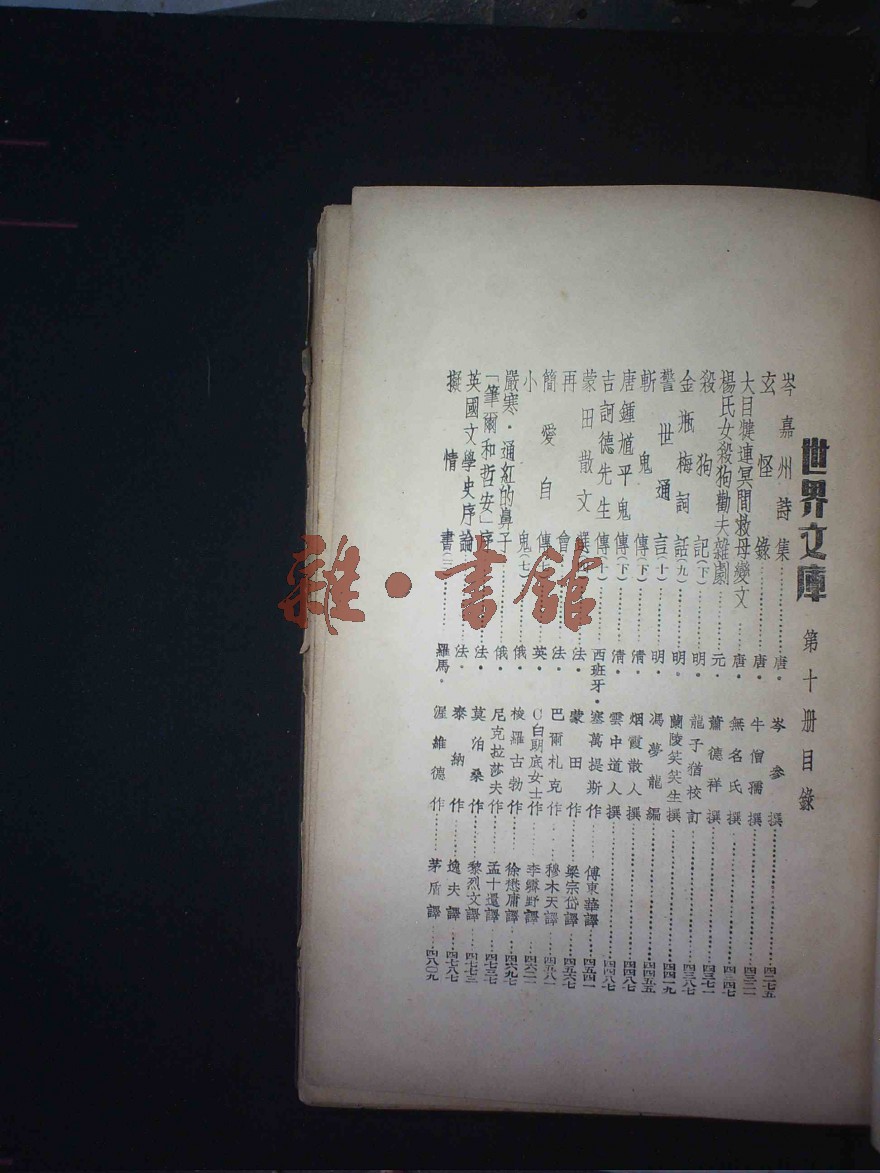 世界文庫 第十册目錄
岑嘉州詩集……唐・岑參撰……四二七五
玄怪錄……唐・牛僧孺撰……四三二一
大目犍連冥間救母變文・唐・無名氏撰……四三四七
楊氏女殺狗勸夫雜劇・元・蕭德祥撰……四三七一
殺狗記(下)・明・龍子猶校訂……四三八七
金瓶梅詞話(九)・明・蘭陵笑笑生撰……四四一九
警世通言(十)・明・馮夢龍編……四四五五
斬鬼傳(下)・清・烟霞散人撰……四四八七
唐鍾馗平鬼傳(下)・清・雲中道人撰……
吉訶德先生傳(十)・西班牙・塞萬提斯作……傅東華譯……四五四一
蒙田散文選・法・蒙田作……梁宗岱譯……四五六七
再會・法・巴爾札克作……穆木天譯……四五八一
簡愛自傳・英・C白朗底女士作……李霽野譯……四六二一
小鬼(七)・俄・梭羅古勃作……徐懋庸譯……四六九七
嚴寒・通紅的鼻子・俄・尼克拉莎夫作……孟十還譯……四七三七
「筆爾和哲安」序・法・莫泊桑作……黎烈文譯……四七七三
英國文學史序論・法・泰納作……逸夫譯……四七八七
擬情書(二)・羅馬・渥維德作……茅盾譯……四八〇九
雜・書館